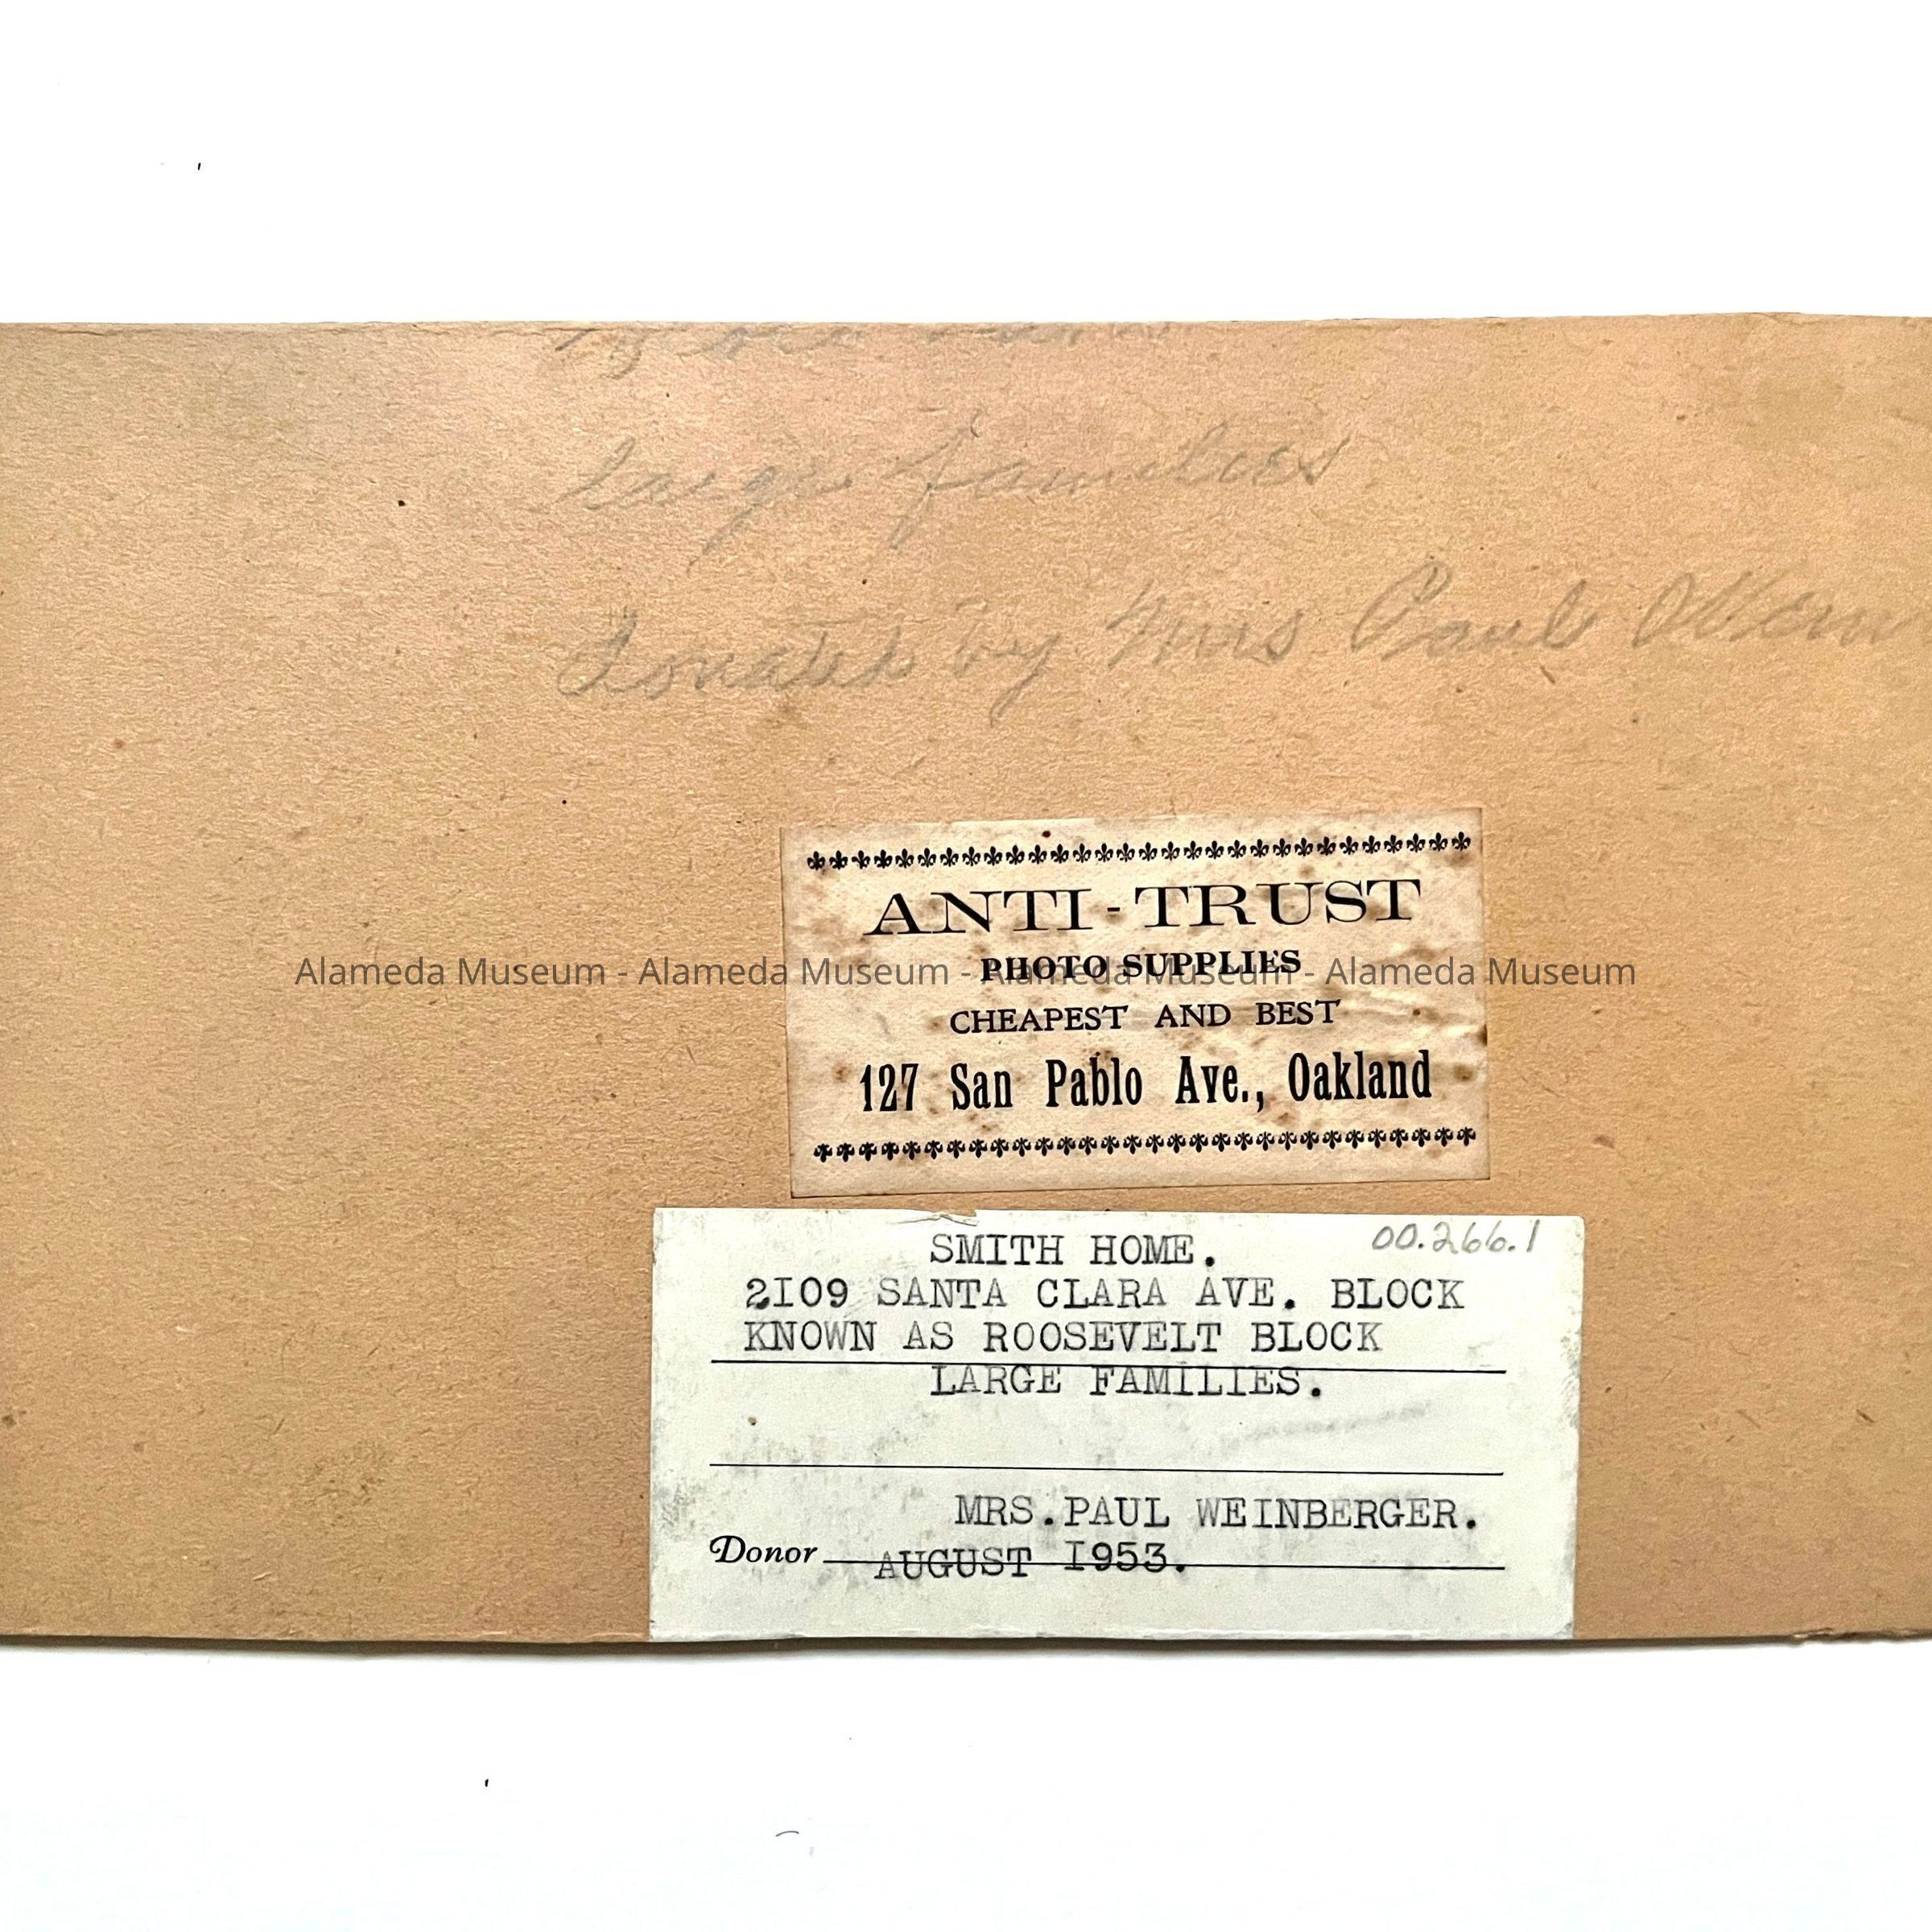 large families
Donated by Mrs Paul
ANTI-TRUST
PHOTO SUPPLIES
CHEAPEST AND BEST
127 San Pablo Ave., Oakland
Alameda Museum - Alameda Museum - Alameda Museum - Alameda Museum
00.266.1
SMITH HOME.
2109 SANTA CLARA AVE. BLOCK
KNOWN AS ROOSEVELT BLOCK
LARGE FAMILIES.
MRS.PAUL WEINBERGER.
Donor AUGUST 1953.